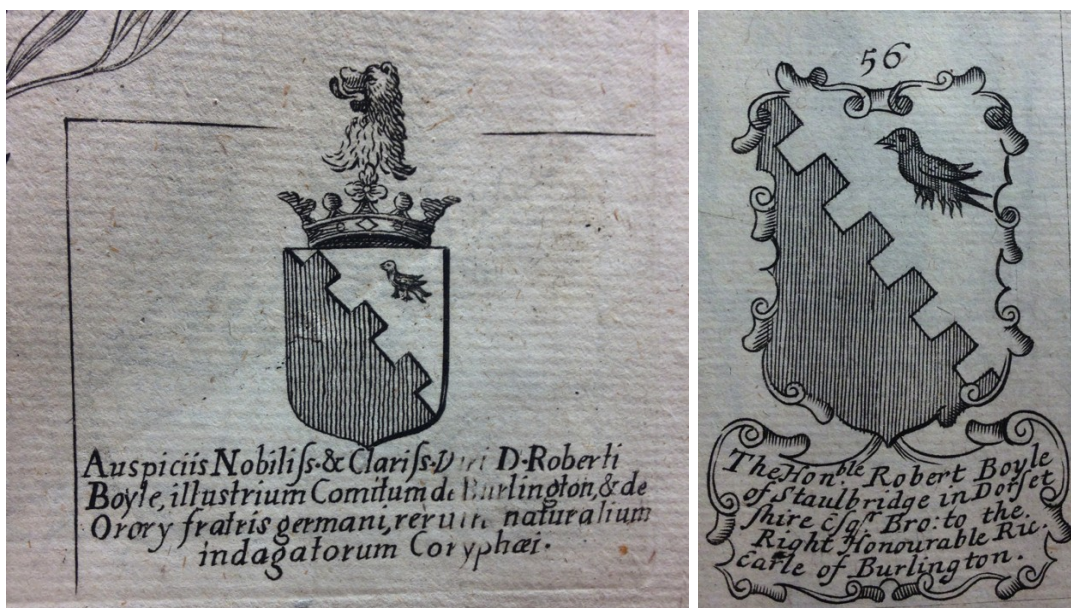 Auspiciis Nobiliſs. & Clariſs. Viri D. Roberti
Boyle, illustrium Comitum de Burlington, & de
Orory fratris germani, rerum naturalium
indagatorum Coryphæi.
56
The Hon.ble Robert Boyle
of Staulbridge in Dorſet
ſhire eſq.r Bro: to the
Right Honourable Ric.
Earle of Burlington.